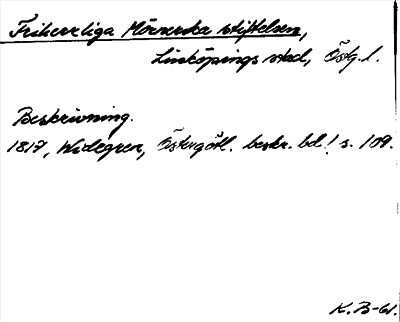 Friherrliga Mörnerska stiftelsen,
Linköpings stad, Östg. l.
Beskrivning.
1817, Widegren, Östergötl. beskr. bd 1 s. 109.
K. B-W.